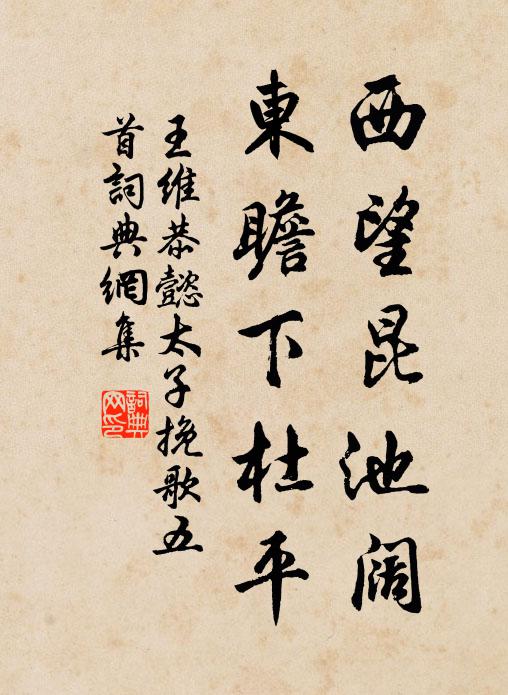 西望昆池阔
東瞻下杜平
王維恭懿太子挽歌五
首詞典網集
詞典
网印